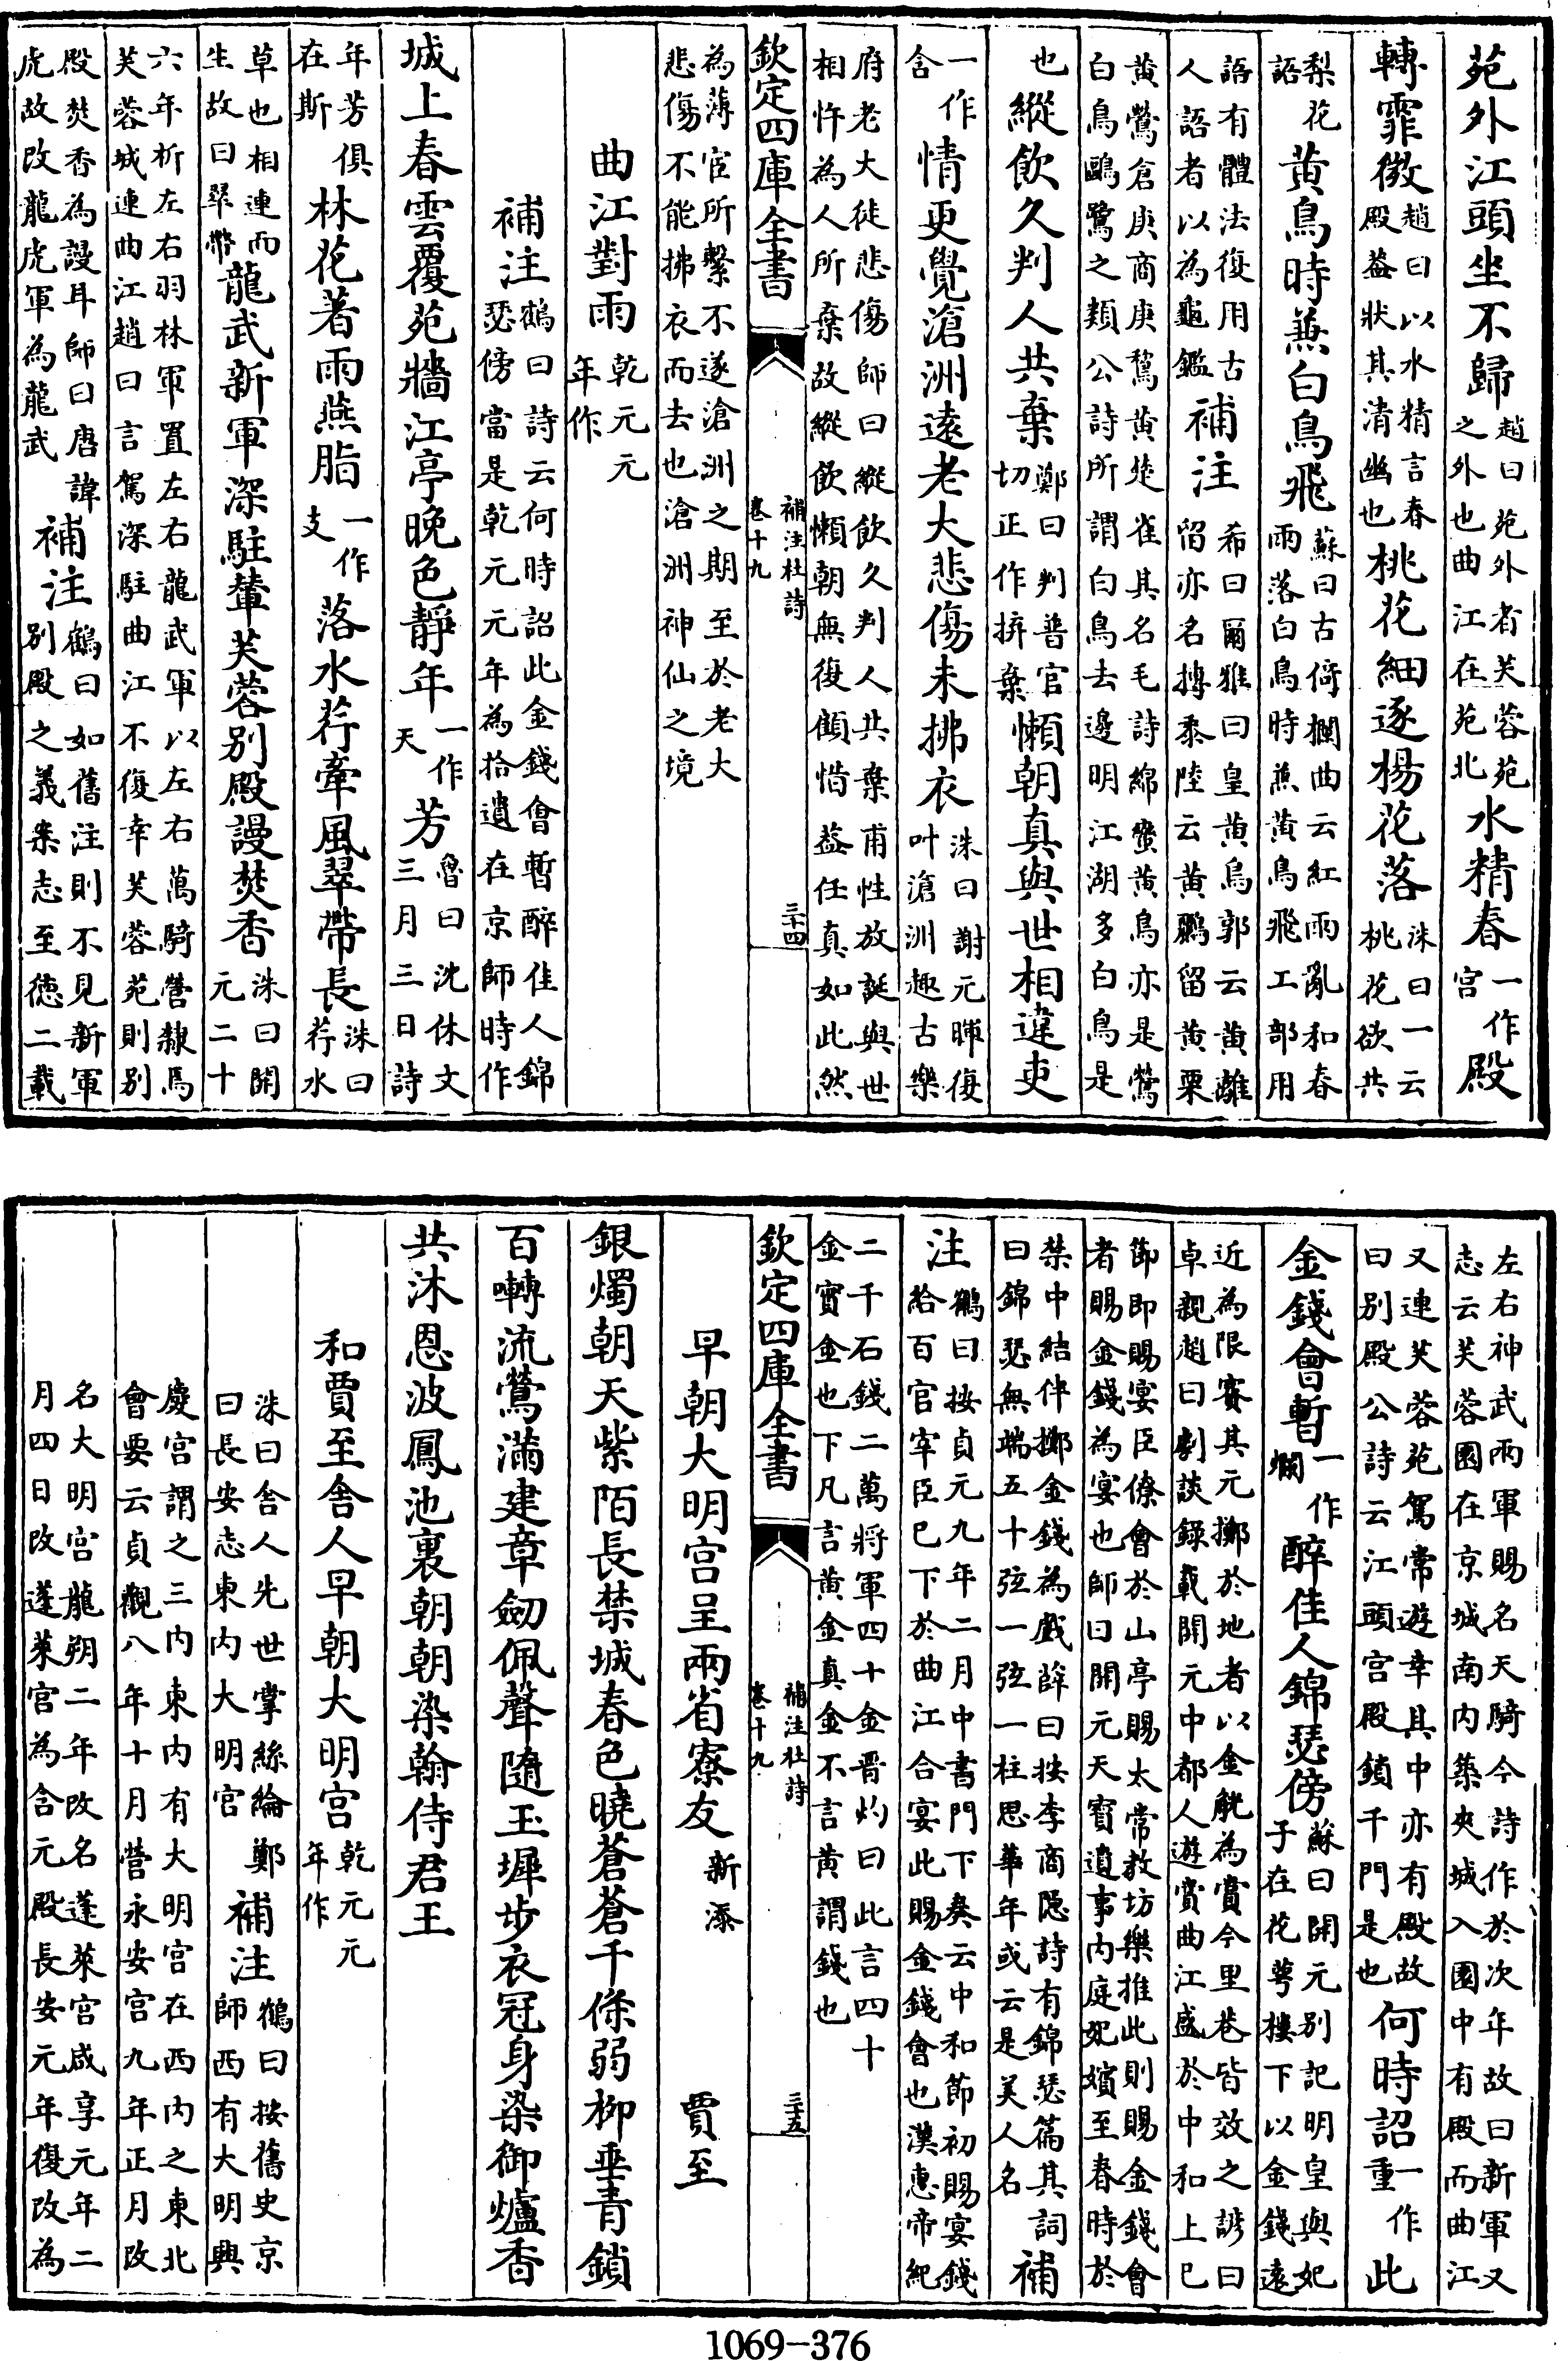 苑外江頭坐不歸趙曰苑外者芙蓉苑之外也曲江在苑北水精春一作宮殿
轉霏微趙曰以水精言春殿蓋狀其清幽也桃花細逐楊花落洙曰一云桃花欲共
梨花語黃鳥時兼白鳥飛蘇曰古倚欄曲云紅雨亂和春雨落白鳥時兼黃鳥飛工部用
語有體法復用古人語者以為龜鑑補注希曰爾雅曰皇黃鳥郭云黃離留亦名摶黍陸云黃鸝留黃栗
黃鶯倉庚商庚鶖黃黃楚雀其名毛詩綿蠻黃鳥亦是鶯白鳥鷗鷺之類公詩所謂白鳥去邊明江湖多白鳥是
也縱飲久判人共棄鄭曰判普官切正作拚棄懶朝真與世相違吏
一作含情更覺滄洲遠老大悲傷未拂衣洙曰謝元暉復叶滄洲趣古樂
府老大徒悲傷師曰縱飲久判人共棄甫性放誕與世相忤為人所棄故縱飲懶朝無復顧惜蓋任真如此然
欽定四庫全書 補注杜詩卷十九 三十四
為薄宦所繫不遂滄洲之期至於老大悲傷不能拂衣而去也滄洲神仙之境
曲江對雨乾元元年作
補注鶴曰詩云何時詔此金錢會暫醉佳人錦瑟傍當是乾元元年為拾遺在京師時作
城上春雲覆苑牆江亭晚色靜年一作天芳魯曰沈休文三月三日詩
年芳俱在斯林花著雨燕脂一作支落水荇牽風翠帶長洙曰荇水
草也相連而生故曰翠帶龍武新軍深駐輦芙蓉別殿謾焚香洙曰開元二十
六年析左右羽林軍置左右龍武軍以左右萬騎營隸焉芙蓉城連曲江趙曰言駕深駐曲江不復幸芙蓉苑則別
殿焚香為謾耳師曰唐諱虎故改龍虎軍為龍武補注鶴曰如舊注則不見新軍別殿之義案志至德二載
左右神武兩軍賜名天騎今詩作於次年故曰新軍又志云芙蓉園在京城南內築夾城入園中有殿而曲江
又連芙蓉苑駕常遊幸其中亦有殿故曰別殿公詩云江頭宮殿鎖千門是也何時詔一作重此
金錢會暫一作爛醉佳人錦瑟傍蘇曰開元別記明皇與妃子在花萼樓下以金錢遠
近為限賽其元擲於地者以金觥為賞今里巷皆效之諺曰卓親趙曰劇談錄載開元中都人遊賞曲江盛於中和上巳
節即賜宴臣僚會於山亭賜太常教坊樂推此則賜金錢會者賜金錢為宴也師曰開元天寶遺事內庭妃嬪至春時於
禁中結伴擲金錢為戲薛曰按李商隱詩有錦瑟篇其詞曰錦瑟無端五十弦一弦一柱思華年或云是美人名補
注鶴曰按貞元九年二月中書門下奏云中和節初賜宴錢給百官宰臣已下於曲江合宴此賜金錢會也漢惠帝紀
二千石錢二萬將軍四十金晉灼曰此言四十金實金也下凡言黃金真金不言黃謂錢也
欽定四庫全書 補注杜詩卷十九 三十五
早朝大明宮呈兩省寮友新添 賈至
銀燭朝天紫陌長禁城春色曉蒼蒼千條弱柳垂青鎖
百囀流鶯滿建章劒佩聲隨玉墀步衣冠身染御爐香
共沐恩波鳳池裏朝朝染翰侍君王
和賈至舍人早朝大明宮乾元元年作
洙曰舍人先世掌絲綸鄭曰長安志東內大明宮補注鶴曰按舊史京師西有大明興
慶宮謂之三內東內有大明宮在西內之東北會要云貞觀八年十月營永安宮九年正月改
名大明宮龍朔二年改名蓬萊宮咸享元年二月四日改蓬萊宮為含元殿長安元年復改為
1069-376